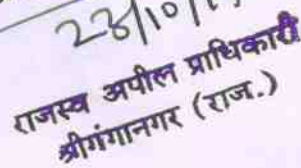 23/10/
राजस्व अपील प्राधिकारी
श्रीगंगानगर (राज.)